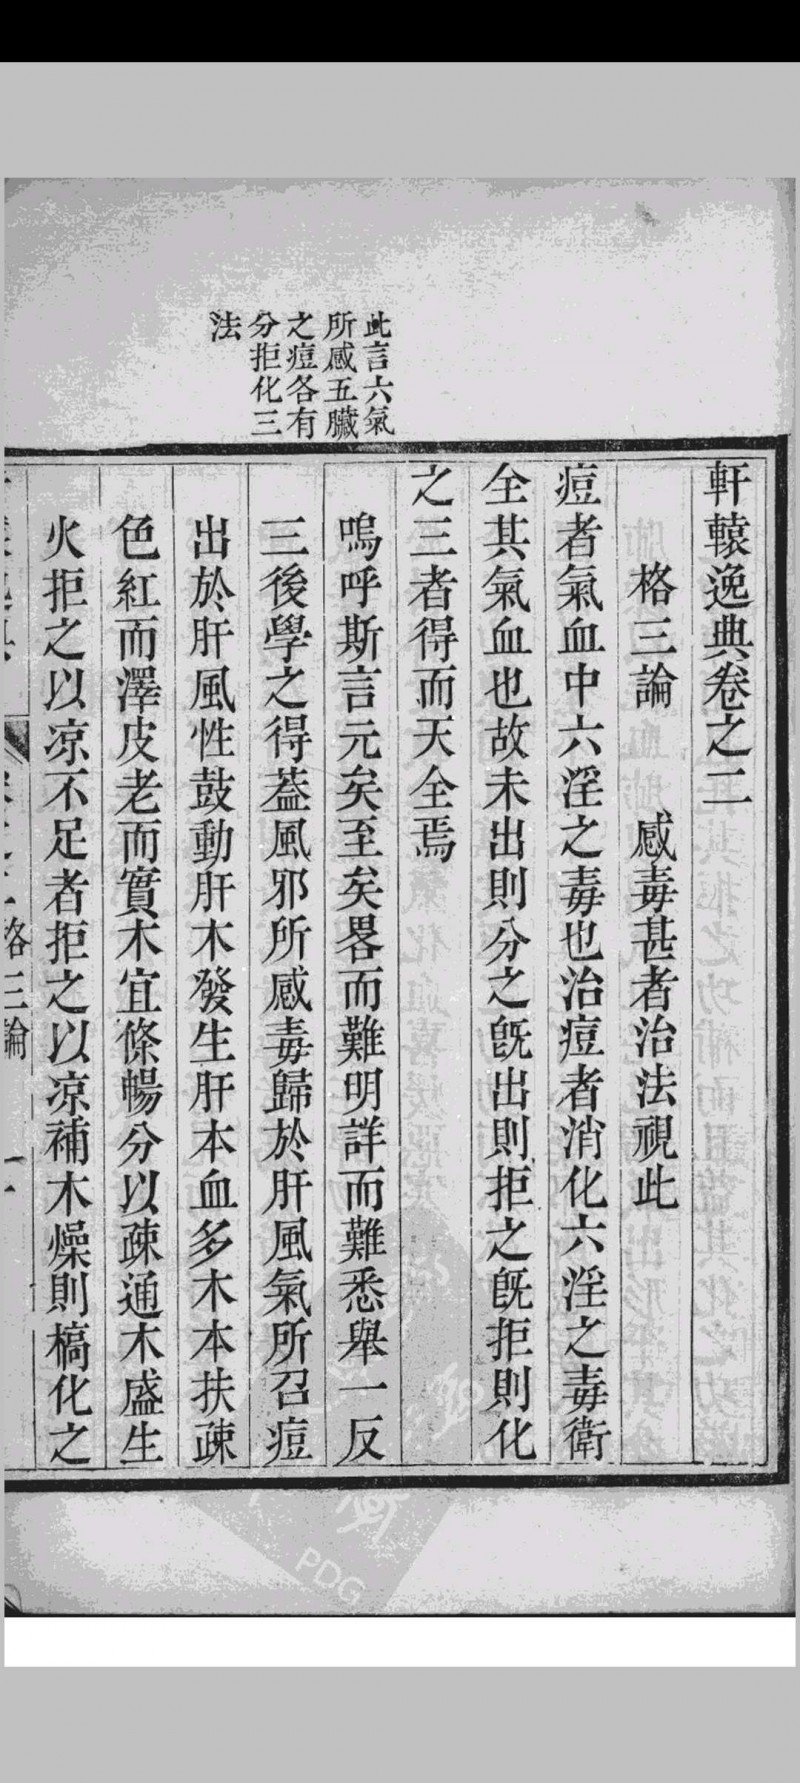 此言六氣
所感五臟
之痘各有
分拒化三
法
軒轅逸典卷之二
格三論 感毒甚者治法視此
痘者氣血中六淫之毒也治痘者消化六淫之毒衛
全其氣血也故未出則分之旣出則拒之旣拒則化
之三者得而天全焉
嗚呼斯言元矣至矣畧而難明詳而難悉舉一反
三後學之得蓋風邪所感毒歸於肝風氣所召痘
出於肝風性鼓動肝木發生肝本血多木本扶疎
色紅而澤皮老而實木宜條暢分以疎通木盛生
火拒之以凉不足者拒之以凉補木燥則槁化之
格三論
PDG